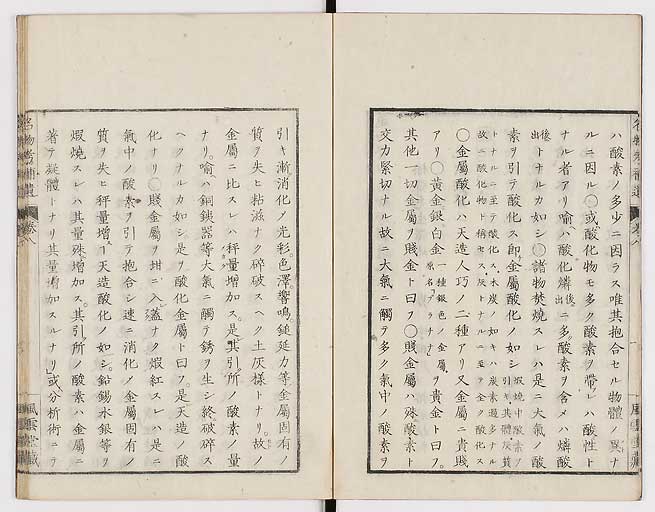 ハ酸素ノ多少ニ因ラス唯其抱合セル物體ノ異ナ
ルニ因ル〇或酸化物モ多ク酸素ヲ帶レハ酸性ト
ナル者アリ喩ハ酸化燐後ニ出多酸素ヲ含メハ燐酸
後ニ出トナルカ如シ〇諸物焚燒スレハ是ニ大氣ノ酸
素ヲ引テ酸化ス即金屬酸化ノ如シ
トナルニ至テ酸化ス木炭ノ如キハ炭素過多ナル
故ニ酸化物ト稱セス灰トナルニ至テ全ク酸化ス
〇金屬酸化ハ天造人巧ノ二種アリ又金屬ニ貴賤
アリ〇黃金銀白金一種銀色ノ金屬原名プラチナヲ貴金ト曰フ
其他一切金屬ヲ賤金ト曰フ〇賤金屬ハ殊酸素ト
交力緊切ナル故ニ大氣ニ觸テ多ク氣中ノ酸素ヲ
名物考補遺 卷八
風雲堂藏
引キ漸消化ノ光彩色澤響鳴鎚延力等金屬固有ノ
質ヲ失ヒ粘滋ナク碎破スヘク土灰樣トナリ故ノ
金屬ニ比スレハ秤量增加ス是其引所ノ酸素ノ量
ナリ喩ハ銅鐵器等大氣ニ觸テ銹ヲ生シ終破碎ス
ヘクナルカ如シ是ヲ酸化金屬ト曰フ是天造ノ酸
化ナリ〇賤金屬ヲ坩ニ入蓋ナク煅紅スレハ是ニ
氣中ノ酸素ヲ引テ抱合シ速ニ消化ノ金屬固有ノ
質ヲ失ヒ秤量增ノ天造酸化ノ如シ鉛錫水銀等ヲ
煅燒スレハ其量殊增加ス其引所ノ酸素ハ金屬ニ
著テ凝體トナリ其量增加スルナリ或分析術ニテ
名物考補遺 卷八
風雲堂藏